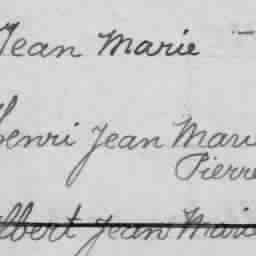 Jean Marie
Henri Jean Marie
Pierre
Albert Jean Marie